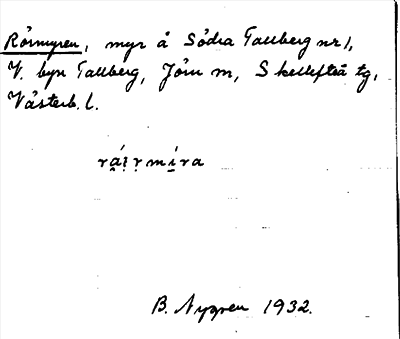 Rörmyren, myr å Södra Tallberg nr 1,
V. byn Tallberg, Jörn sn, Skellefteå tg,
Västerb. l.
B. Nygren 1932.